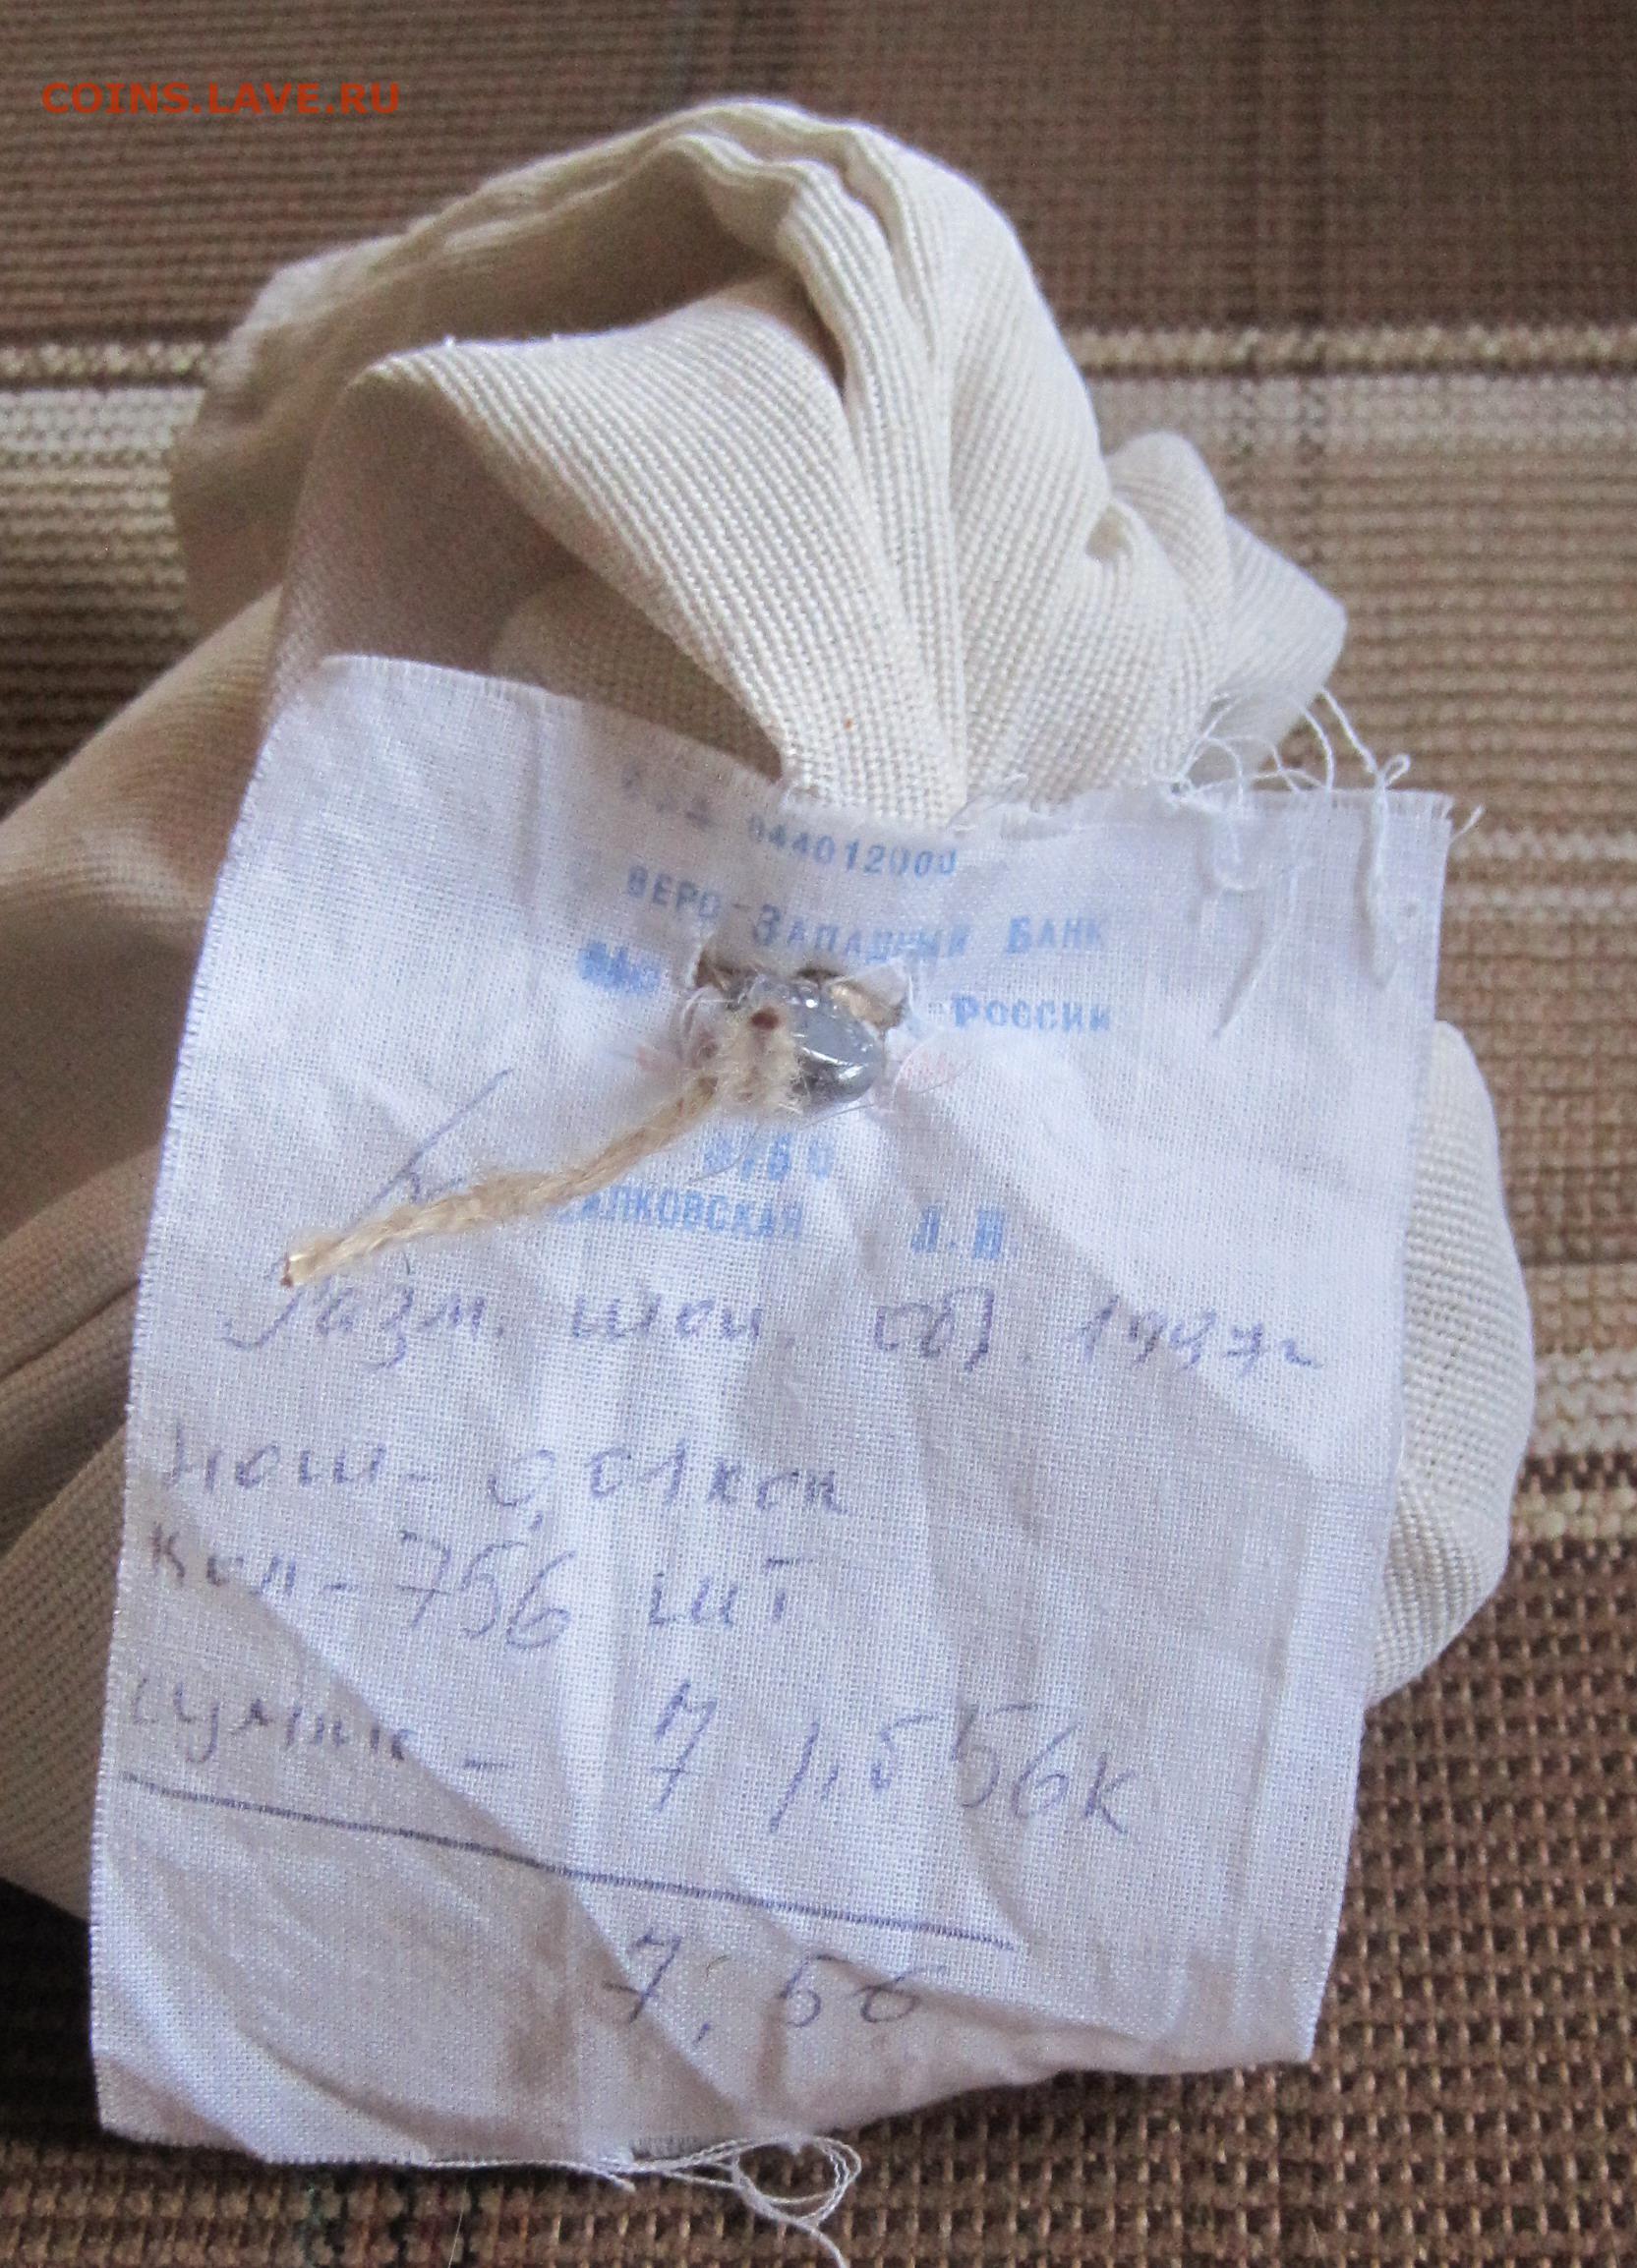 COINS.LAVE.RU
044012000
ВЕРО-ЗАПАДНЫЙ БАНК
РОССИИ
АЛКОВСКАЯ
Разм. мон. обр. 1997г
ном - 0,01 коп
кол - 756 шт
сумма - 7 р. 56к
7,56